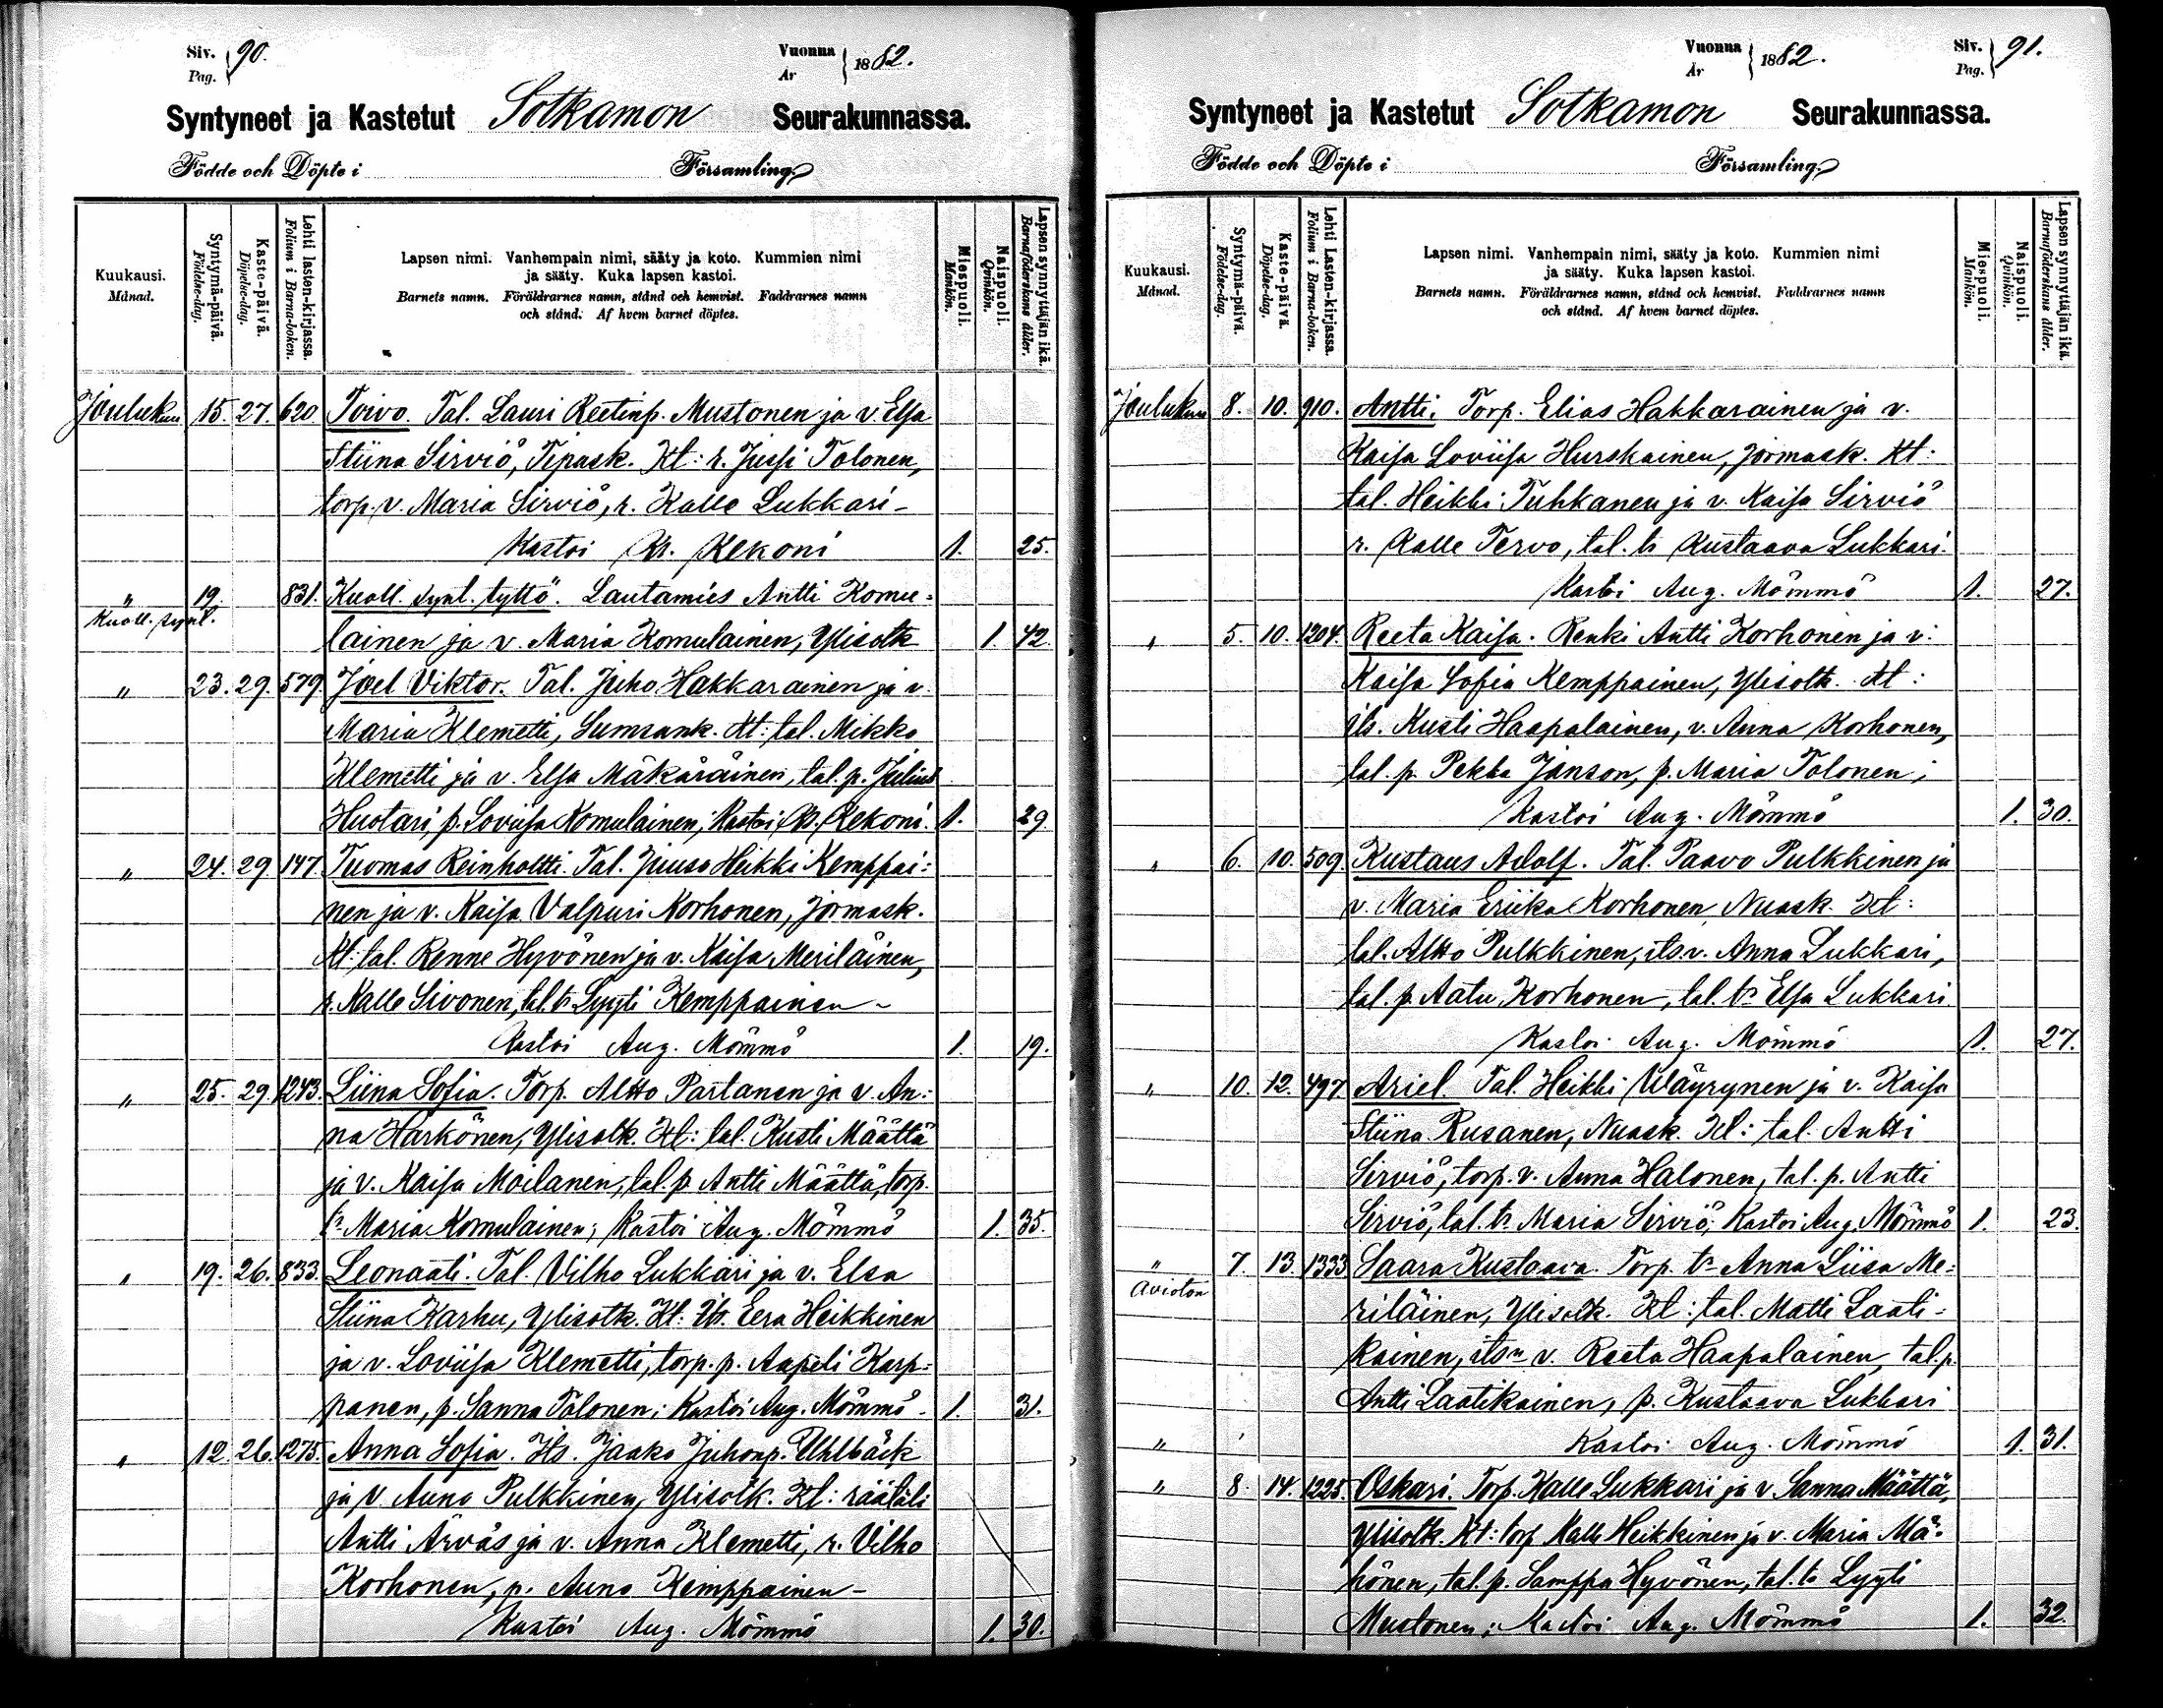 Siv. 90.
Pag.
Vuonna 1882.
År
Syntyneet ja Kastetut Sotkamon Seurakunnassa.
Födde och Döpte i Församling.
Kuukausi.
Månad.
Syntymä-päivä.
Födelse-dag.
Kaste-päivä.
Döpelse-dag.
Lehti lasten-kirjassa.
Folium i Barna-boken.
Lapsen nimi. Vanhempain nimi, sääty ja koto. Kummien nimi
ja sääty. Kuka lapsen kastoi.
Barnets namn. Föräldrarnes namn, stånd och hemvist. Faddrarnes namn
och stånd. Af hvem barnet döptes.
Miespuoli.
Mankön.
Naispuoli.
Qvinkön.
Lapsen synnyttäjän ikä.
Barnaföderskans ålder.
Joulukuu 15. 27. 620. Toivo. Tal. Lauri Reetinp. Mustonen ja v. Elsa
Stiina Sirviö, Tipask. Kt: r. Jussi Tolonen,
torp. v. Maria Sirviö, r. Kalle Lukkari –
Kastoi Kr. Kekoni 1. 25.
" 19. 831. Kuoll. synt. tyttö. Lautamies Antti Komu=
Kuoll. synt.
lainen ja v. Maria Komulainen, Ylisotk 1. 42.
" 23. 29. 579. Joel Viktor. Tal. Juho Hakkarainen ja v.
Maria Klemetti, Sumsank. Kt: tal. Mikko
Klemetti ja v. Elsa Mäkäräinen, tal. p. Julius
Huotari, p. Loviisa Komulainen; Kastoi Kr. Kekoni. 1. 29
" 24. 29 147 Tuomas Reinholtti. Tal. Juuso Heikki Kemppai=
nen ja v. Kaisa Valpuri Korhonen, Jormask.
Kt: tal. Renne Hyvönen ja v. Kaisa Meriläinen,
r. Kalle Sivonen, tal. tr Lyyti Kemppainen –
Kastoi Aug. Mömmö 1. 19.
" 25. 29. 1243. Liina Sofia. Torp. Altto Partanen ja v. An=
na Härkönen, Ylisotk. Kt: tal. Kusti Määttä
ja v. Kaisa Moilanen, tal. p. Antti Määttä, torp.
tr Maria Komulainen; Kastoi Aug. Mömmö 1. 35.
" 19. 26. 833. Leonaati. Tal. Vilho Lukkari ja v. Elsa
Stiina Karhu, Ylisotk. Kt: Its. Eera Heikkinen
ja v. Loviisa Klemetti, torp. p. Aapeli Karp=
panen, p. Sanna Tolonen; Kastoi Aug. Mömmö – 1. 31.
" 12. 26. 1275. Anna Sofia. Its. Jaako Juhonp. Uhlbäck
ja v. Auno Pulkkinen, Ylisotk. Kt: räätäli
Antti Ärväs ja v. Anna Klemetti, r. Vilho
Korhonen, p. Auno Kemppainen –
Kastoi Aug. Mömmö 1. 30.
Vuonna 1882.
År
Siv. 91.
Pag.
Syntyneet ja Kastetut Sotkamon Seurakunnassa.
Födde och Döpte i Församling.
Kuukausi.
Månad.
Syntymä-päivä.
Födelse-dag.
Kaste-päivä.
Döpelse-dag.
Lehti Lasten-kirjassa.
Folium i Barna-boken.
Lapsen nimi. Vanhempain nimi, sääty ja koto. Kummien nimi
ja sääty. Kuka lapsen kastoi.
Barnets namn. Föräldrarnes namn, stånd och hemvist. Faddrarnes namn
och stånd. Af hvem barnet döptes.
Miespuoli.
Mankön.
Naispuoli.
Qvinkön.
Lapsen synnyttäjän ikä.
Barnaföderskans ålder.
Joulukuu 8. 10. 910. Antti. Torp. Elias Hakkarainen ja v.
Kaisa Loviisa Hurskainen, Jormask. Kt:
tal. Heikki Tuhkanen ja v. Kaisa Sirviö
r. Kalle Tervo, tal. tr Kustaava Lukkari.
Kastoi Aug. Mömmö 1. 27.
" 5. 10. 1204. Reeta Kaisa. Renki Antti Korhonen ja v.
Kaisa Sofia Kemppainen, Ylisotk. Kt:
its. Kusti Haapalainen, v. Anna Korhonen,
tal. p. Pekka Jänson, p. Maria Tolonen;
Kastoi Aug. Mömmö 1. 30.
" 6. 10. 509. Kustaus Adolf. Tal. Paavo Pulkkinen ja
v. Maria Eriika Korhonen, Nuask. Kt:
tal. Altto Pulkkinen, its. v. Anna Lukkari,
tal. p. Aatu Korhonen, tal. tr Elsa Lukkari
Kastoi Aug. Mömmö 1. 27.
" 10. 12. 497. Ariel. Tal. Heikki Wäyrynen ja v. Kaisa
Stiina Rusanen, Nuask. Kt: tal. Antti
Sirviö, torp. v. Anna Halonen, tal. p. Antti
Sirviö, tal. tr. Maria Sirviö; Kastoi Aug. Mömmö 1. 23.
" 7. 13. 1333 Saara Kustaava. Torp. tr Anna Liisa Me=
Avioton
riläinen, Ylisotk. Kt: tal. Matti Laati=
kainen, itsn v. Reeta Haapalainen, tal. p.
Antti Laatikainen, p. Kustaava Lukkari
" Kastoi Aug. Mömmö 1. 31.
" 8. 14. 1225. Oskari. Torp. Kalle Lukkari ja v. Sanna Määttä,
Ylisotk. Kt: torp. Kalle Heikkinen ja v. Maria Mä=
hönen, tal. p. Samppa Hyvönen, tal. tr Lyyti
Mustonen; Kastoi Aug. Mömmö 1. 32.